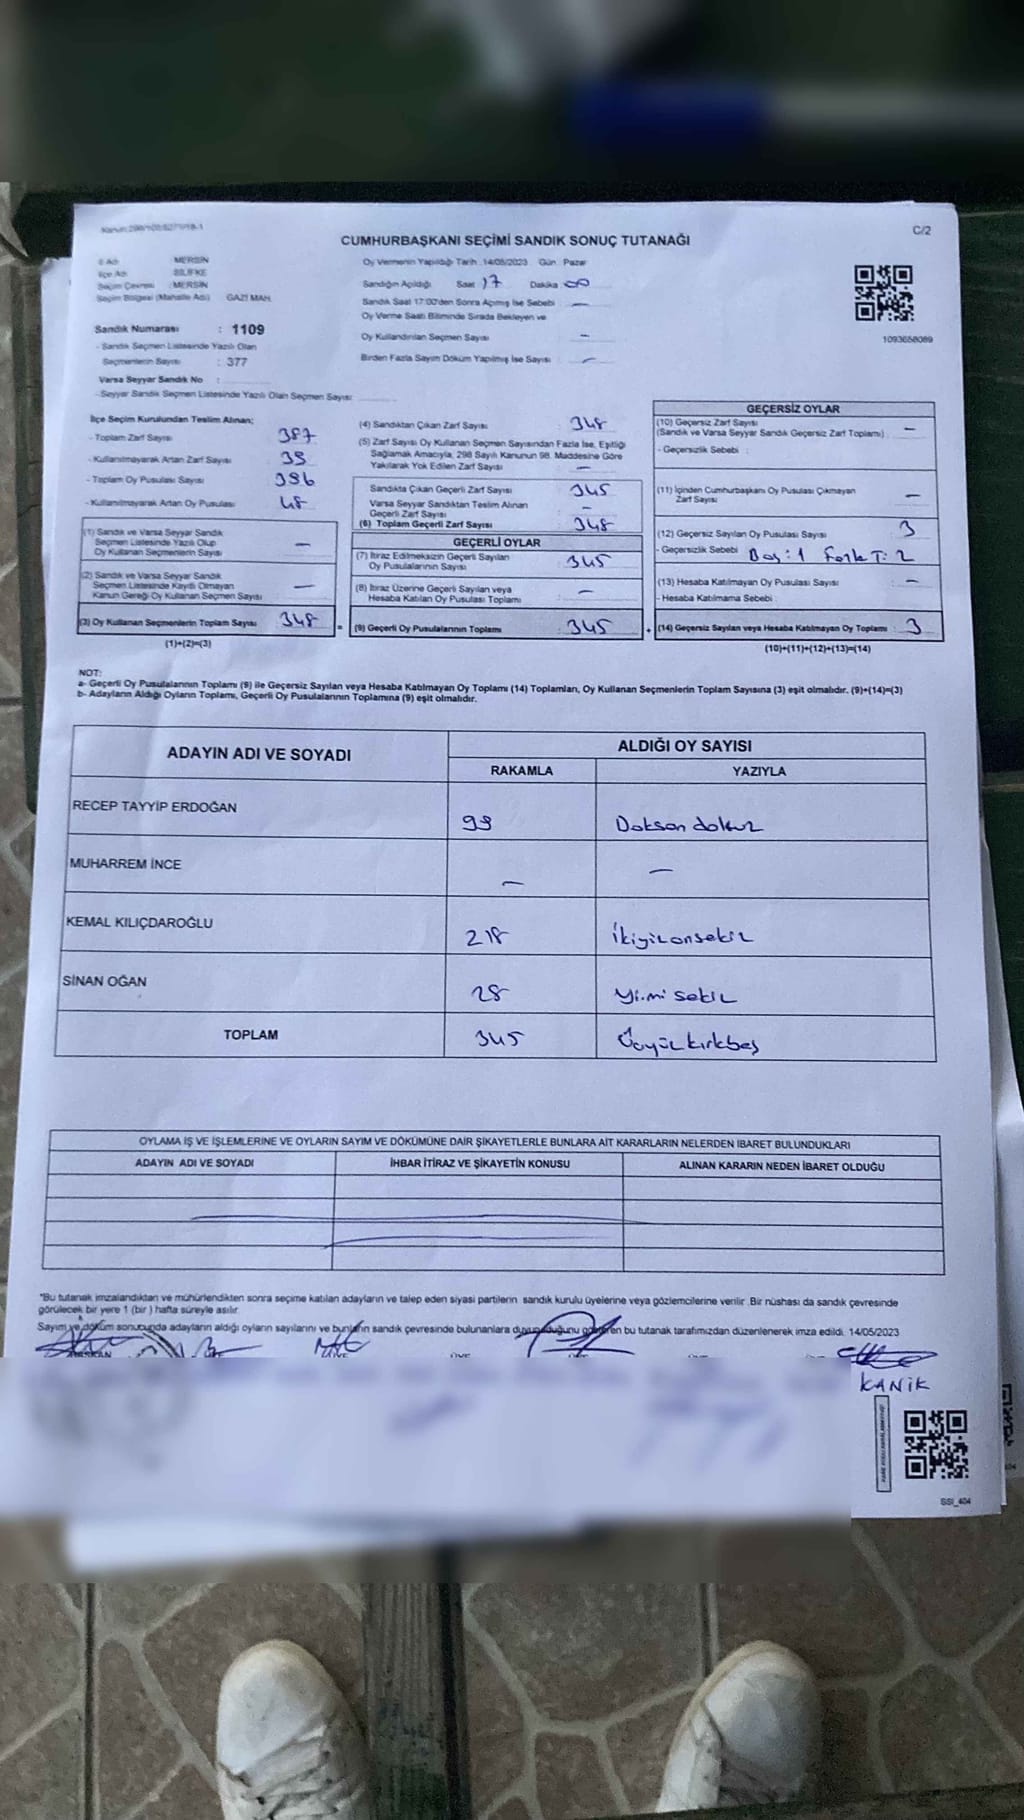 Kanun:298/103;6271/18-1
C/2
CUMHURBAŞKANI SEÇİMİ SANDIK SONUÇ TUTANAĞI
İl Adı : MERSİN
İlçe Adı : SİLİFKE
Seçim Çevresi : MERSİN
Seçim Bölgesi (Mahalle Adı) GAZİ MAH.
Sandık Numarası : 1109
- Sandık Seçmen Listesinde Yazılı Olan
Seçmenlerin Sayısı : 377
Varsa Seyyar Sandık No :
- Seyyar Sandık Seçmen Listesinde Yazılı Olan Seçmen Sayısı:
Oy Vermenin Yapıldığı Tarih :14/05/2023 Gün: Pazar
Sandığın Açıldığı Saat 17 Dakika 00
Sandık Saat 17:00'den Sonra Açımış İse Sebebi —
Oy Verme Saati Bitiminde Sırada Bekleyen ve
Oy Kullandırılan Seçmen Sayısı —
Birden Fazla Sayım Döküm Yapılmış İse Sayısı —
1093658089
İlçe Seçim Kurulundan Teslim Alınan;
- Toplam Zarf Sayısı 387
- Kullanılmayarak Artan Zarf Sayısı 39
- Toplam Oy Pusulası Sayısı 396
- Kullanılmayarak Artan Oy Pusulası 48
(1) Sandık ve Varsa Seyyar Sandık
Seçmen Listesinde Yazılı Olup
Oy Kullanan Seçmenlerin Sayısı —
(2) Sandık ve Varsa Seyyar Sandık
Seçmen Listesinde Kayıtlı Olmayan
Kanun Gereği Oy Kullanan Seçmen Sayısı —
(3) Oy Kullanan Seçmenlerin Toplam Sayısı 348 =
(1)+(2)=(3)
(4) Sandıktan Çıkan Zarf Sayısı 348
(5) Zarf Sayısı Oy Kullanan Seçmen Sayısından Fazla İse, Eşitliği
Sağlamak Amacıyla, 298 Sayılı Kanunun 98. Maddesine Göre
Yakılarak Yok Edilen Zarf Sayısı —
Sandıkta Çıkan Geçerli Zarf Sayısı 345
Varsa Seyyar Sandıktan Teslim Alınan
Geçerli Zarf Sayısı —
(6) Toplam Geçerli Zarf Sayısı 348
GEÇERLİ OYLAR
(7) İtiraz Edilmeksizin Geçerli Sayılan
Oy Pusulalarının Sayısı 345
(8) İtiraz Üzerine Geçerli Sayılan veya
Hesaba Katılan Oy Pusulası Toplamı —
(9) Geçerli Oy Pusulalarının Toplamı 345 +
GEÇERSİZ OYLAR
(10) Geçersiz Zarf Sayısı
(Sandık ve Varsa Seyyar Sandık Geçersiz Zarf Toplamı) —
- Geçersizlik Sebebi :
(11) İçinden Cumhurbaşkanı Oy Pusulası Çıkmayan
Zarf Sayısı —
(12) Geçersiz Sayılan Oy Pusulası Sayısı 3
- Geçersizlik Sebebi Boş: 1 Fazla T: 2
(13) Hesaba Katılmayan Oy Pusulası Sayısı —
- Hesaba Katılmama Sebebi :
(14) Geçersiz Sayılan veya Hesaba Katılmayan Oy Toplamı 3
(10)+(11)+(12)+(13)=(14)
NOT:
a- Geçerli Oy Pusulalarının Toplamı (9) ile Geçersiz Sayılan veya Hesaba Katılmayan Oy Toplamı (14) Toplamları, Oy Kullanan Seçmenlerin Toplam Sayısına (3) eşit olmalıdır. (9)+(14)=(3)
b- Adayların Aldığı Oyların Toplamı, Geçerli Oy Pusulalarının Toplamına (9) eşit olmalıdır.
ADAYIN ADI VE SOYADI
ALDIĞI OY SAYISI
RAKAMLA YAZIYLA
RECEP TAYYİP ERDOĞAN 99 Doksan dokuz
MUHARREM İNCE — —
KEMAL KILIÇDAROĞLU 218 İkiyüzonsekiz
SİNAN OĞAN 28 Yirmi sekiz
TOPLAM 345 Üçyüz kırkbeş
OYLAMA İŞ VE İŞLEMLERİNE VE OYLARIN SAYIM VE DÖKÜMÜNE DAİR ŞİKAYETLERLE BUNLARA AİT KARARLARIN NELERDEN İBARET BULUNDUKLARI
ADAYIN ADI VE SOYADI İHBAR İTİRAZ VE ŞİKAYETİN KONUSU ALINAN KARARIN NEDEN İBARET OLDUĞU
"Bu tutanak imzalandıktan ve mühürlendikten sonra seçime katılan adayların ve talep eden siyasi partilerin sandık kurulu üyelerine veya gözlemcilerine verilir. Bir nüshası da sandık çevresinde
görülecek bir yere 1 (bir ) hafta süreyle asılır.
Sayım ve döküm sonucunda adayların aldığı oyların sayılarını ve bunların sandık çevresinde bulunanlara duyurulduğunu gösteren bu tutanak tarafımızdan düzenlenerek imza edildi. 14/05/2023
KANIK
SSI_404